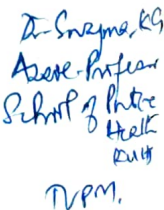 Dr. Suzyma, KG
Assoc. Professor
School of Public
Health
KUHS
TVPM.